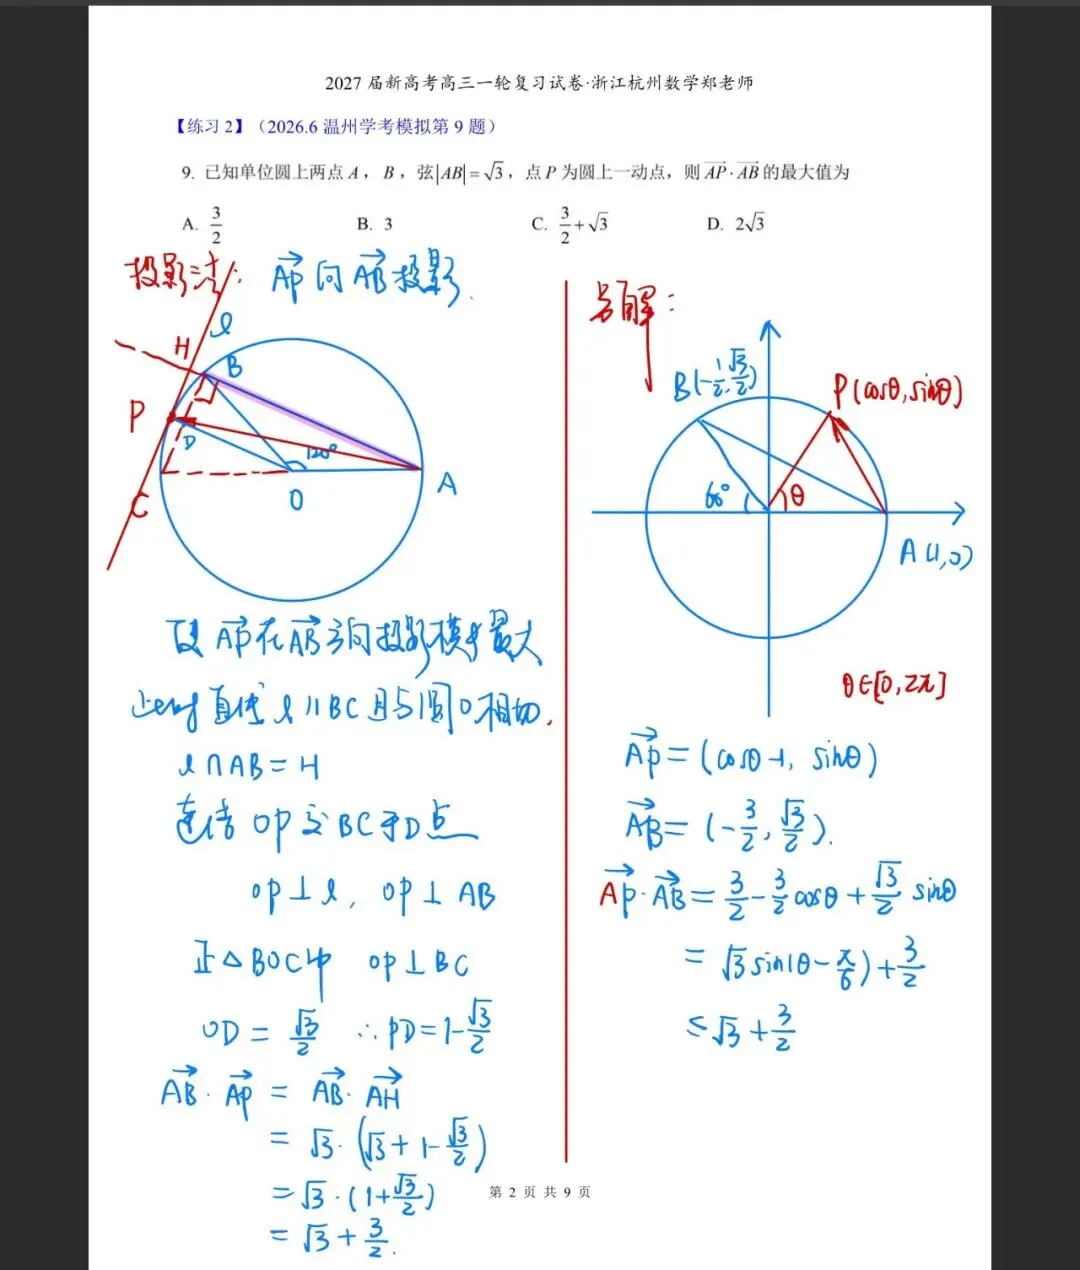 2027 届新高考高三一轮复习试卷·浙江杭州数学郑老师
【练习 2】（2026.6 温州学考模拟第 9 题）
9. 已知单位圆上两点 A，B，弦|AB|=√3，点 P 为圆上一动点，则 AP·AB 的最大值为
A. 3/2 B. 3 C. 3/2+√3 D. 2√3
投影法: AP 向 AB 投影.
l
H
B
P
D
120°
A
O
C
使 AP 在 AB 方向投影模长最大
此时直线 l // BC 且与圆 O 相切.
l∩AB=H
连结 OP 交 BC 于 D 点
OP⊥l, OP⊥AB
正△BOC中 OP⊥BC
OD=√3/2 ∴PD=1-√3/2
AB·AP = AB·AH
=√3·(√3+1-√3/2)
=√3·(1+√3/2)
=√3+3/2.
另解:
B(-1/2,√3/2)
P(cosθ,sinθ)
60°
θ
A(1,0)
θ∈[0,2π]
AP=(cosθ-1, sinθ)
AB=(-3/2,√3/2).
AP·AB=3/2-3/2cosθ+√3/2 sinθ
=√3sin(θ-π/6)+3/2
≤√3+3/2
第 2 页 共 9 页